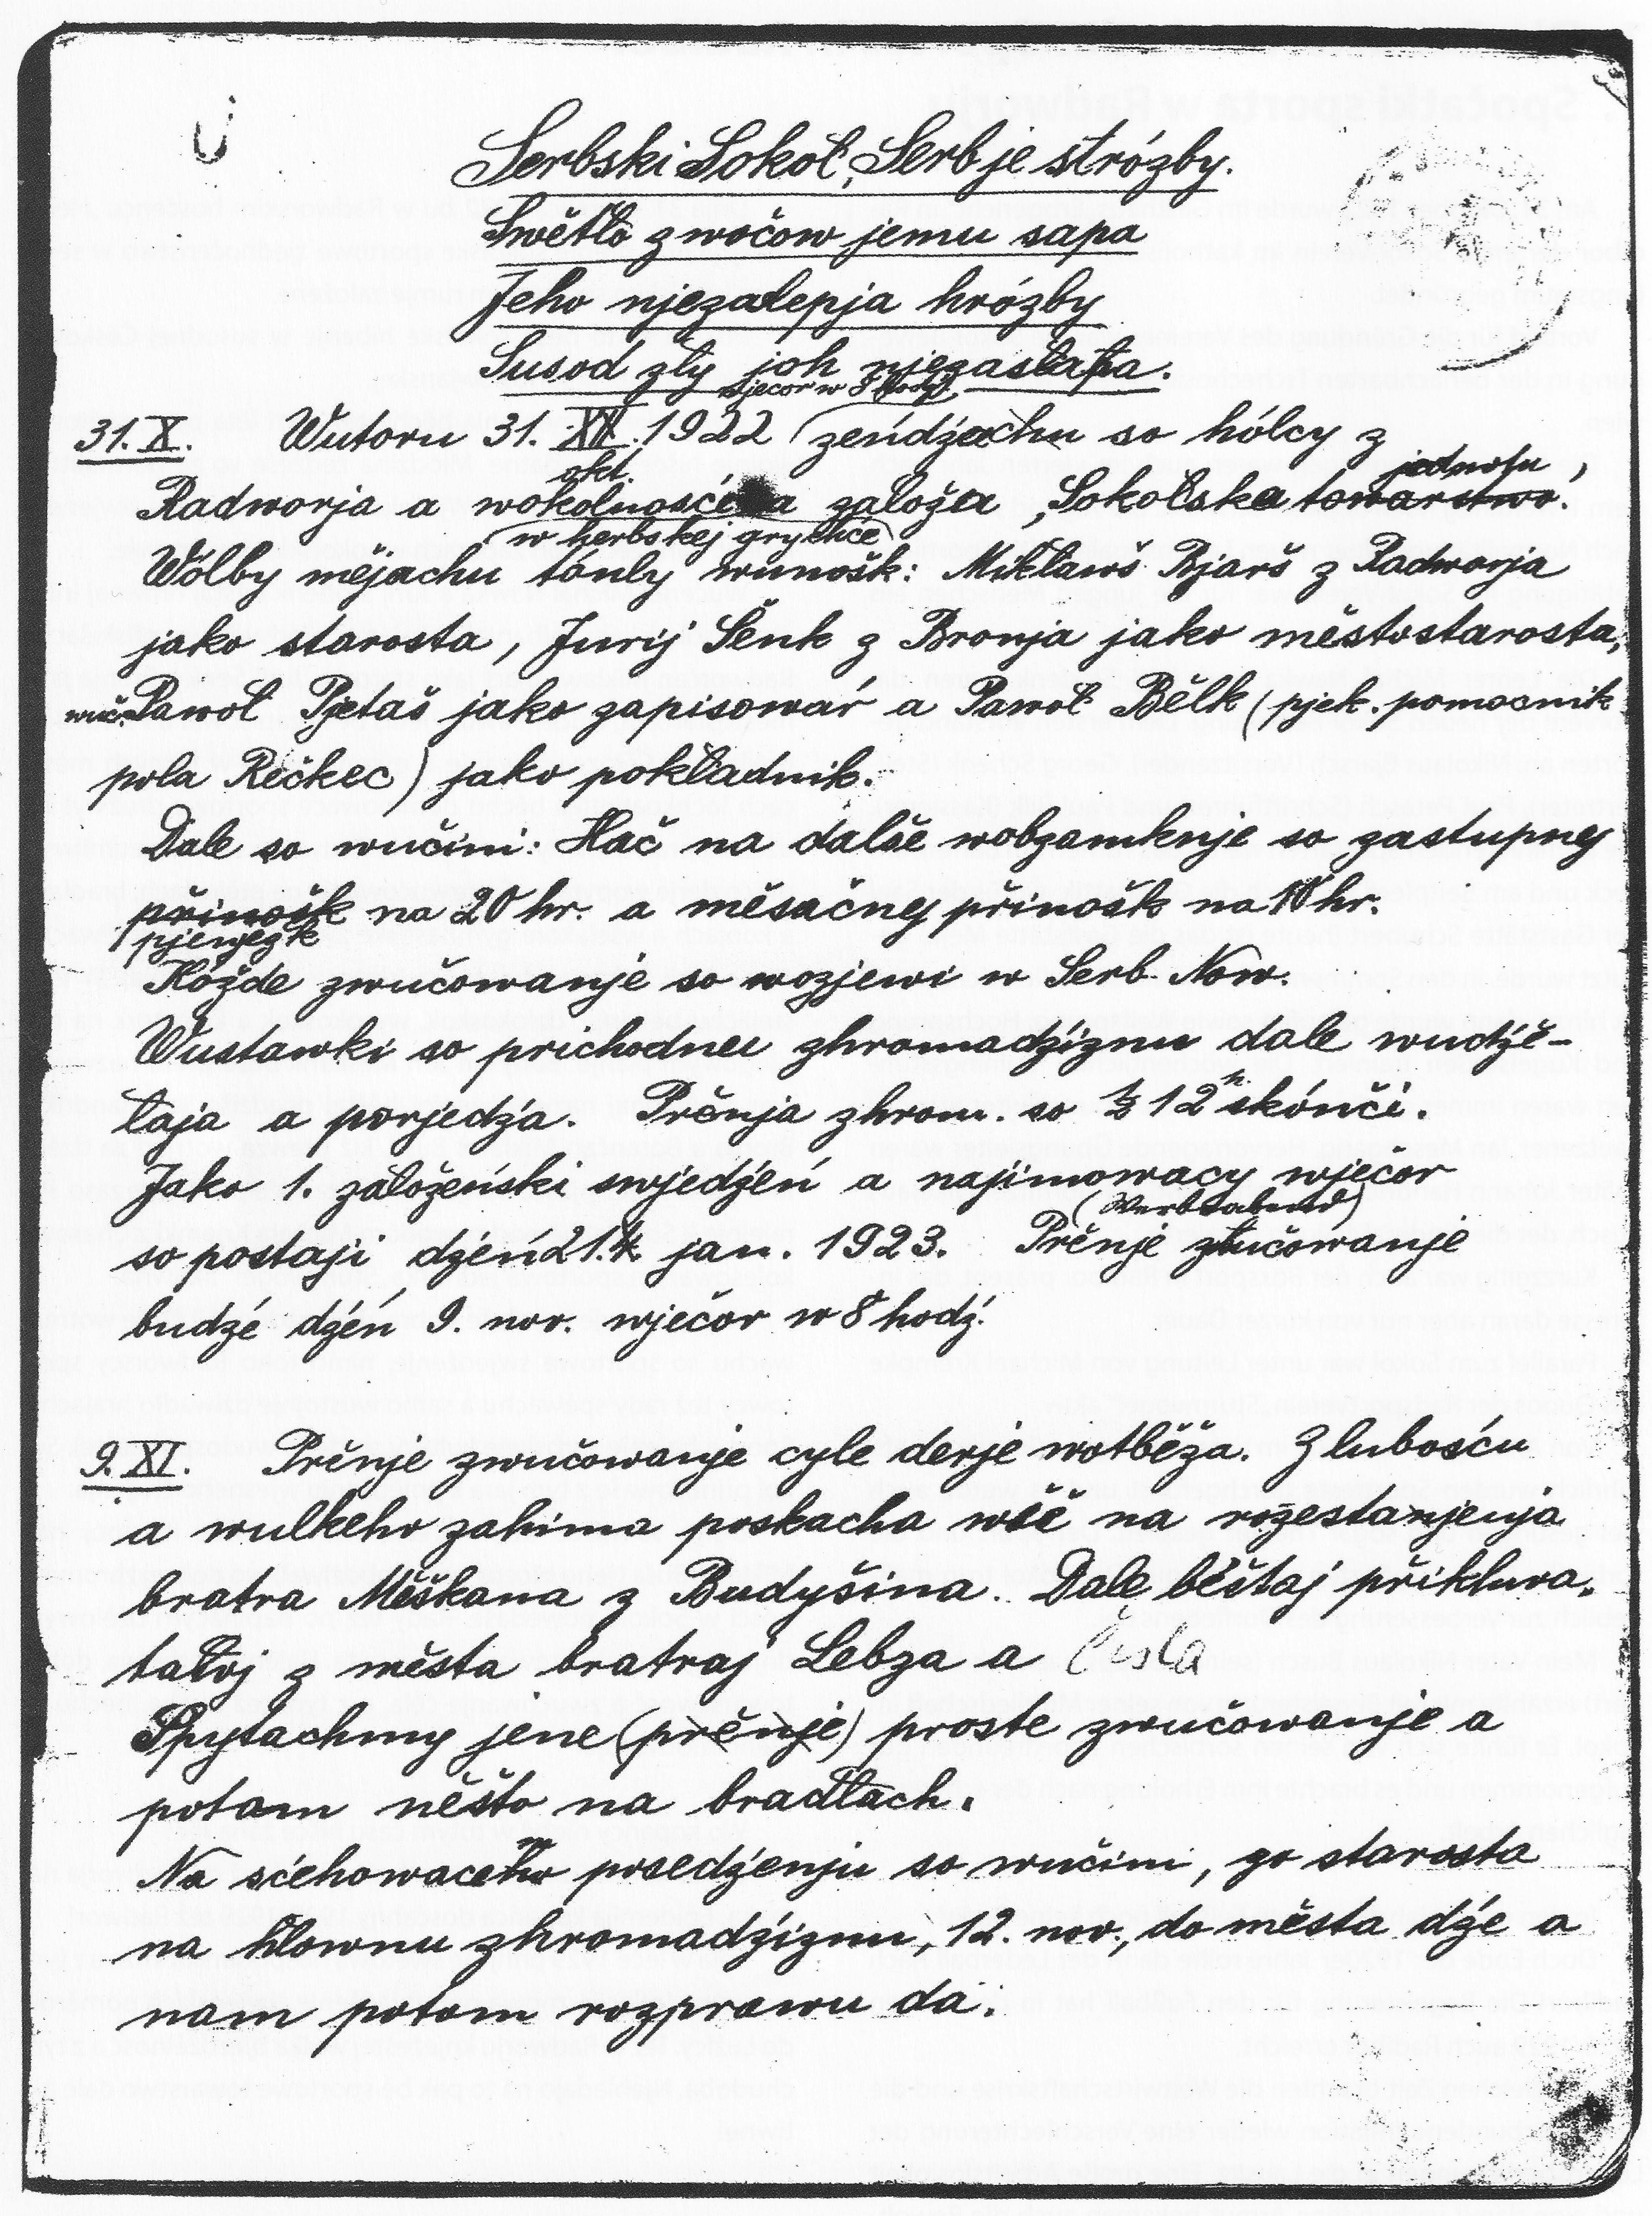 Serbski Sokoł, Serb je stróžby.
Swětło z wočow jemu sapa
Jeho njezalepja hrózby
Susod zły joh njezasłapa.
wječor w 8 hodź.
31. X. Wutoru 31. XII. 1922 zeńdźechu so hólcy z
okt. jednotu,
Radworja a wokolnosće a założa „Sokołska towarstwo.
w herbskej grychće
Wólby mějachu tónly wunošk: Mikławš Bjarš z Radworja
jako starosta, Jurij Šenk z Bronja jako městostarosta,
wuč. Pawoł Pjetaš jako zapisowar a Pawoł Bělk (pjek. pomocnik
pola Rěčkec) jako pokładnik.
Dale so wučini: Hač na dalše wobzamknje so zastupny
přinošk na 20 hr. a měsačny přinošk na 10 hr.
pjenjezk
Kóžde zwučowanje so wozjewi w Serb. Now.
Wustawki so prichodnu zhromadźiznu dale wudźě-
łaja a porjedźa. Prěnja zhrom. so ½ 12 h. skónči.
Jako 1. założeński swjedźeń a najimowacy wječor
(Werbeabend)
so postaji dźeń 21. jan. 1923. Prěnje zwučowanje
budźe dźeń 9. nov. wječor w 8 hodź.
9. XI. Prěnje zwučowanje cyle derje wotběža. Z lubosću
a wulkeho zahima poskacha wšě na rozestanjenja
bratra Měškana z Budyšina. Dale běštaj přikhwa-
tałoj z města bratraj Lebza a Čisla
Spytachmy jene (prěnje) proste zwučowanje a
potam něšto na bradłach.
m
Na sćehowaceho posedźenju so wučini, zo starosta
na hłownu zhromadźiznu, 12. nov., do města dźe a
nam potom rozprawu da.